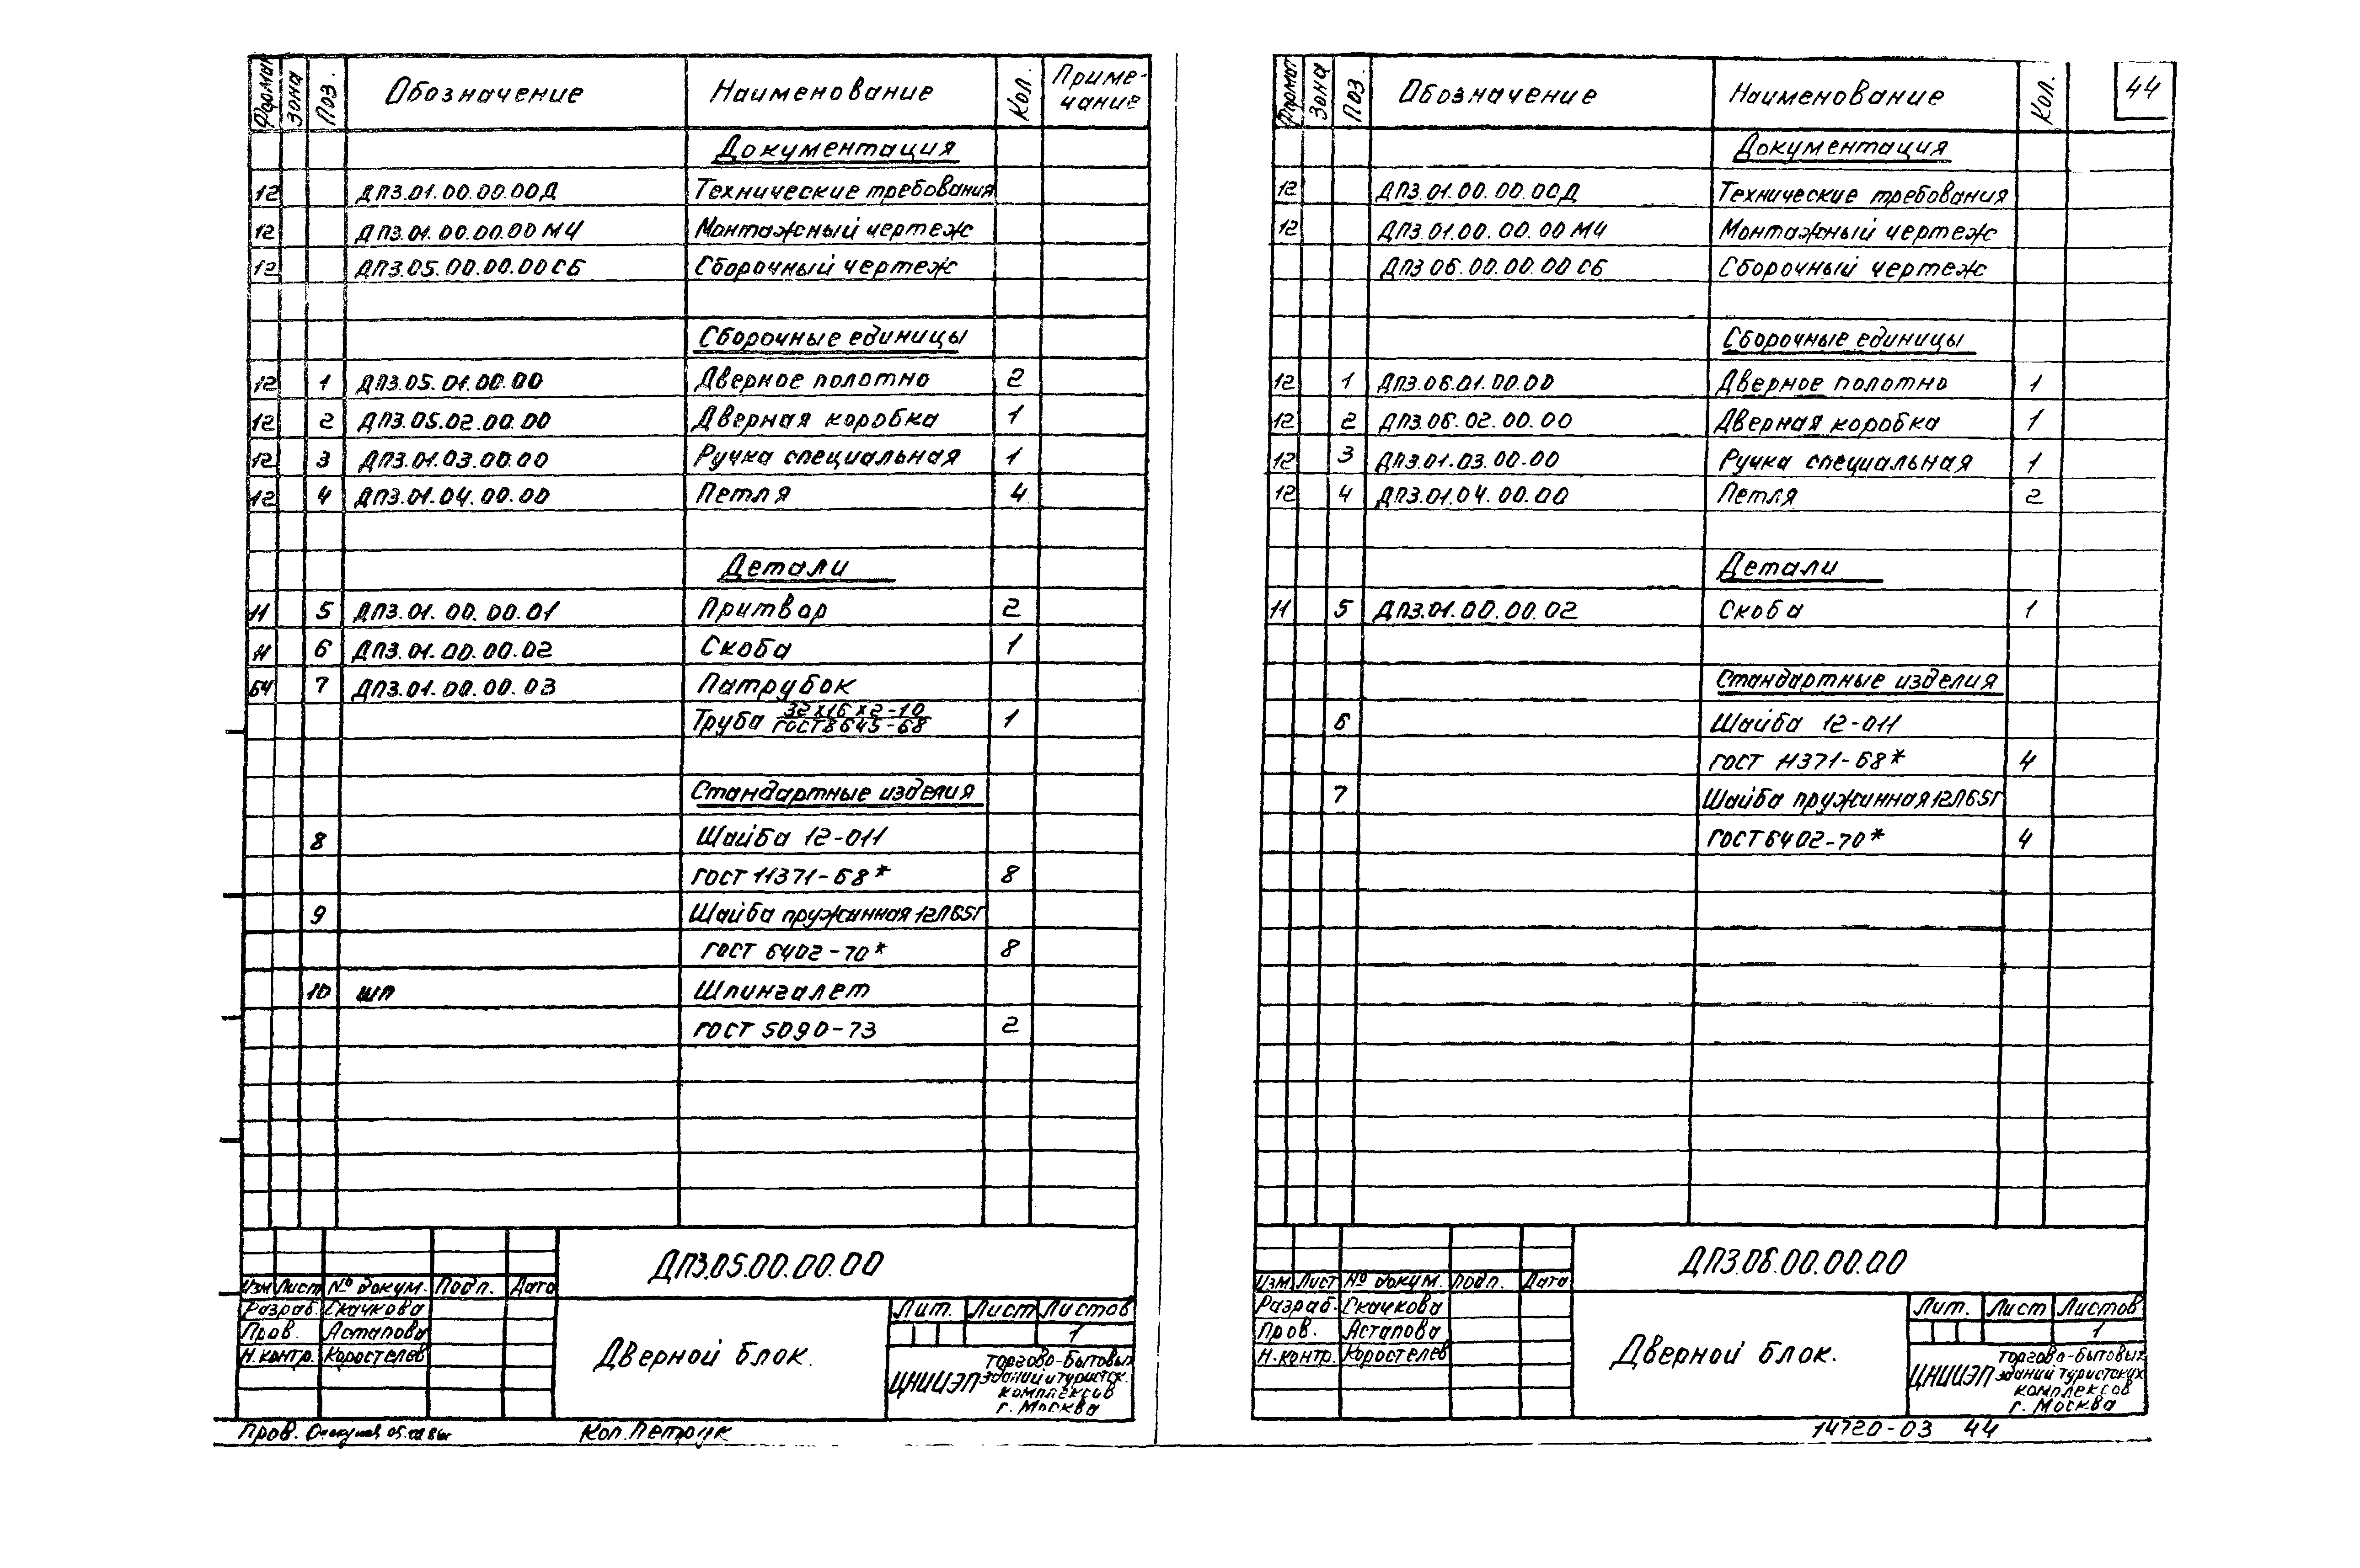 Формат Зона Поз. Обозначение Наименование Кол. Приме-
чание
Документация
12 ДПЗ.01.00.00.00Д Технические требования
12 ДПЗ.01.00.00.00 МЧ Монтажный чертеж
12 ДПЗ.05.00.00.00 СБ Сборочный чертеж
Сборочные единицы
12 1 ДПЗ.05.01.00.00 Дверное полотно 2
12 2 ДПЗ.05.02.00.00 Дверная коробка 1
12 3 ДПЗ.01.03.00.00 Ручка специальная 1
12 4 ДПЗ.01.04.00.00 Петля 4
Детали
11 5 ДПЗ.01.00.00.01 Притвор 2
11 6 ДПЗ.01.00.00.02 Скоба 1
БЧ 7 ДПЗ.01.00.00.03 Патрубок
Труба 32х16х2-10 1
ГОСТ 8645-68
Стандартные изделия
8 Шайба 12-011
ГОСТ 11371-68* 8
9 Шайба пружинная 12Л65Г
ГОСТ 6402-70* 8
10 ШП Шпингалет
ГОСТ 5090-73 2
ДПЗ.05.00.00.00
Изм Лист № докум. Подп. Дата
Разраб. Скачкова
Пров. Астапова
Н.контр. Коростелев
Дверной блок.
Лит. Лист Листов
1
ЦНИИЭП торгово-бытовых
зданий и туристск.
комплексов
г. Москва
Пров. 05.02.86г Коп. Петрук
44
Формат Зона Поз. Обозначение Наименование Кол.
Документация
12 ДПЗ.01.00.00.00Д Технические требования
12 ДПЗ.01.00.00.00 МЧ Монтажный чертеж
ДПЗ 06.00.00.00 СБ Сборочный чертеж
Сборочные единицы
12 1 ДПЗ.06.01.00.00 Дверное полотно 1
12 2 ДПЗ.06.02.00.00 Дверная коробка 1
12 3 ДПЗ.01.03.00.00 Ручка специальная 1
12 4 ДПЗ.01.04.00.00 Петля 2
Детали
11 5 ДПЗ.01.00.00.02 Скоба 1
Стандартные изделия
6 Шайба 12-011
ГОСТ 11371-68* 4
7 Шайба пружинная 12Л65Г
ГОСТ 6402-70* 4
ДПЗ.06.00.00.00
Изм. Лист № докум. Подп. Дата
Разраб. Скачкова
Пров. Астапова
Н.контр. Коростелев
Дверной блок.
Лит. Лист Листов
1
ЦНИИЭП торгово-бытовых
зданий туристских
комплексов
г. Москва
14720-03 44